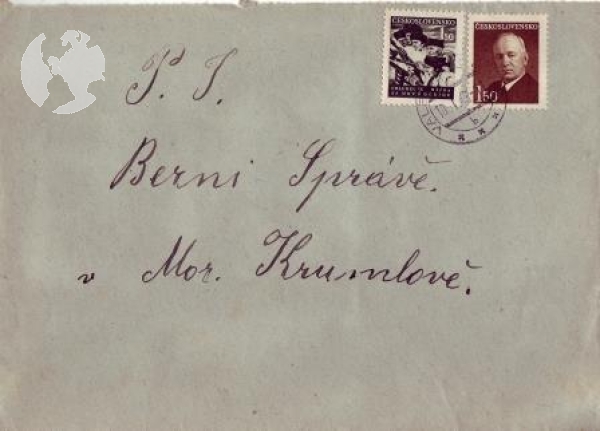 ČESKOSLOVENSKO
1.50
ČESKOSLOVENSKO
1.50
P. T.
Berni Správě.
v Mor. Krumlově.